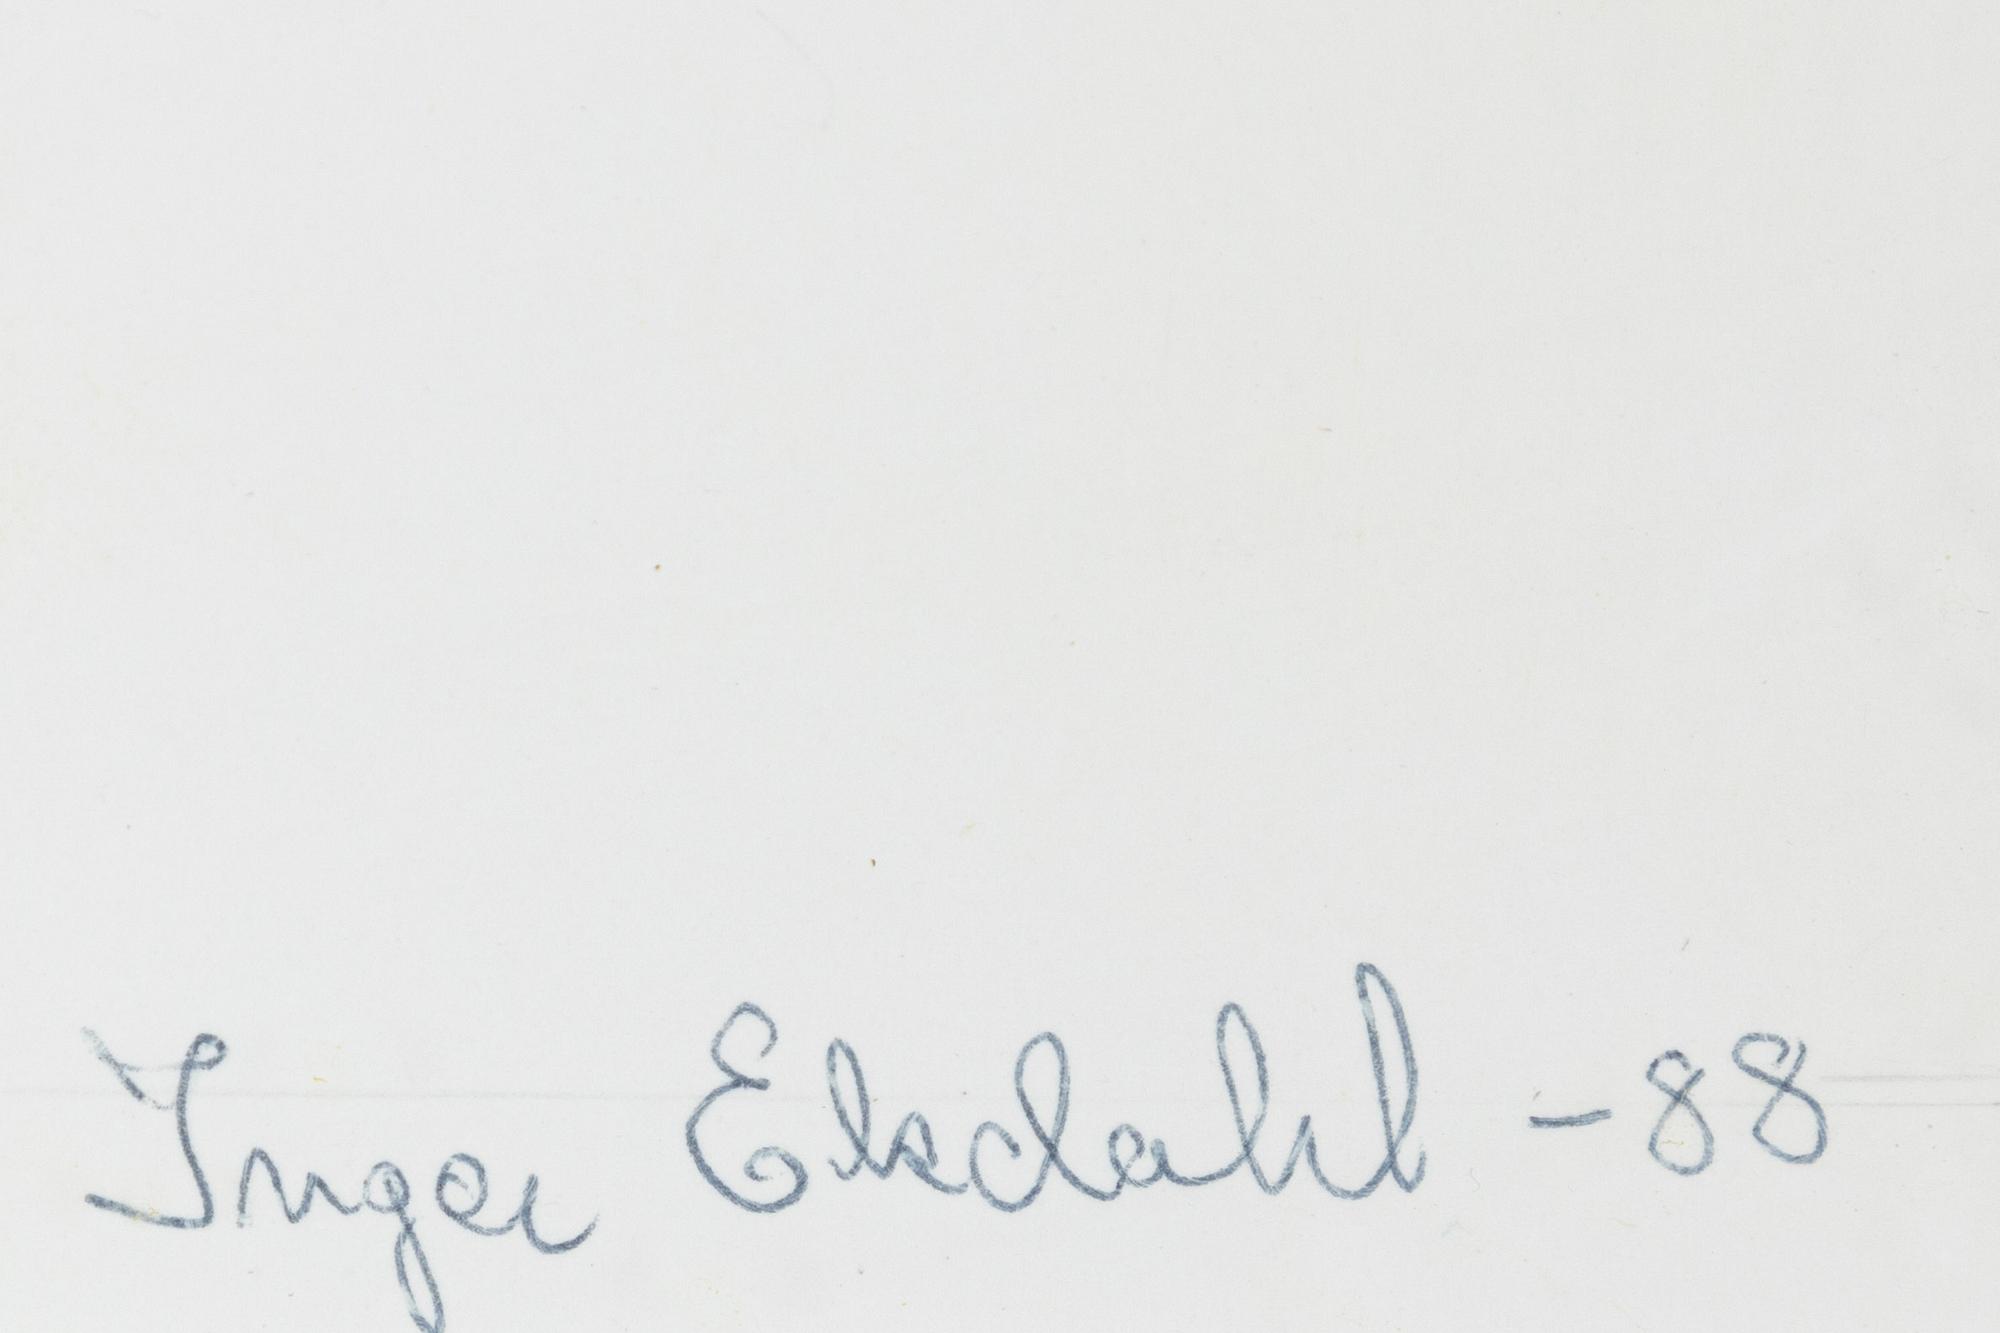 Inger Ekdahl -88